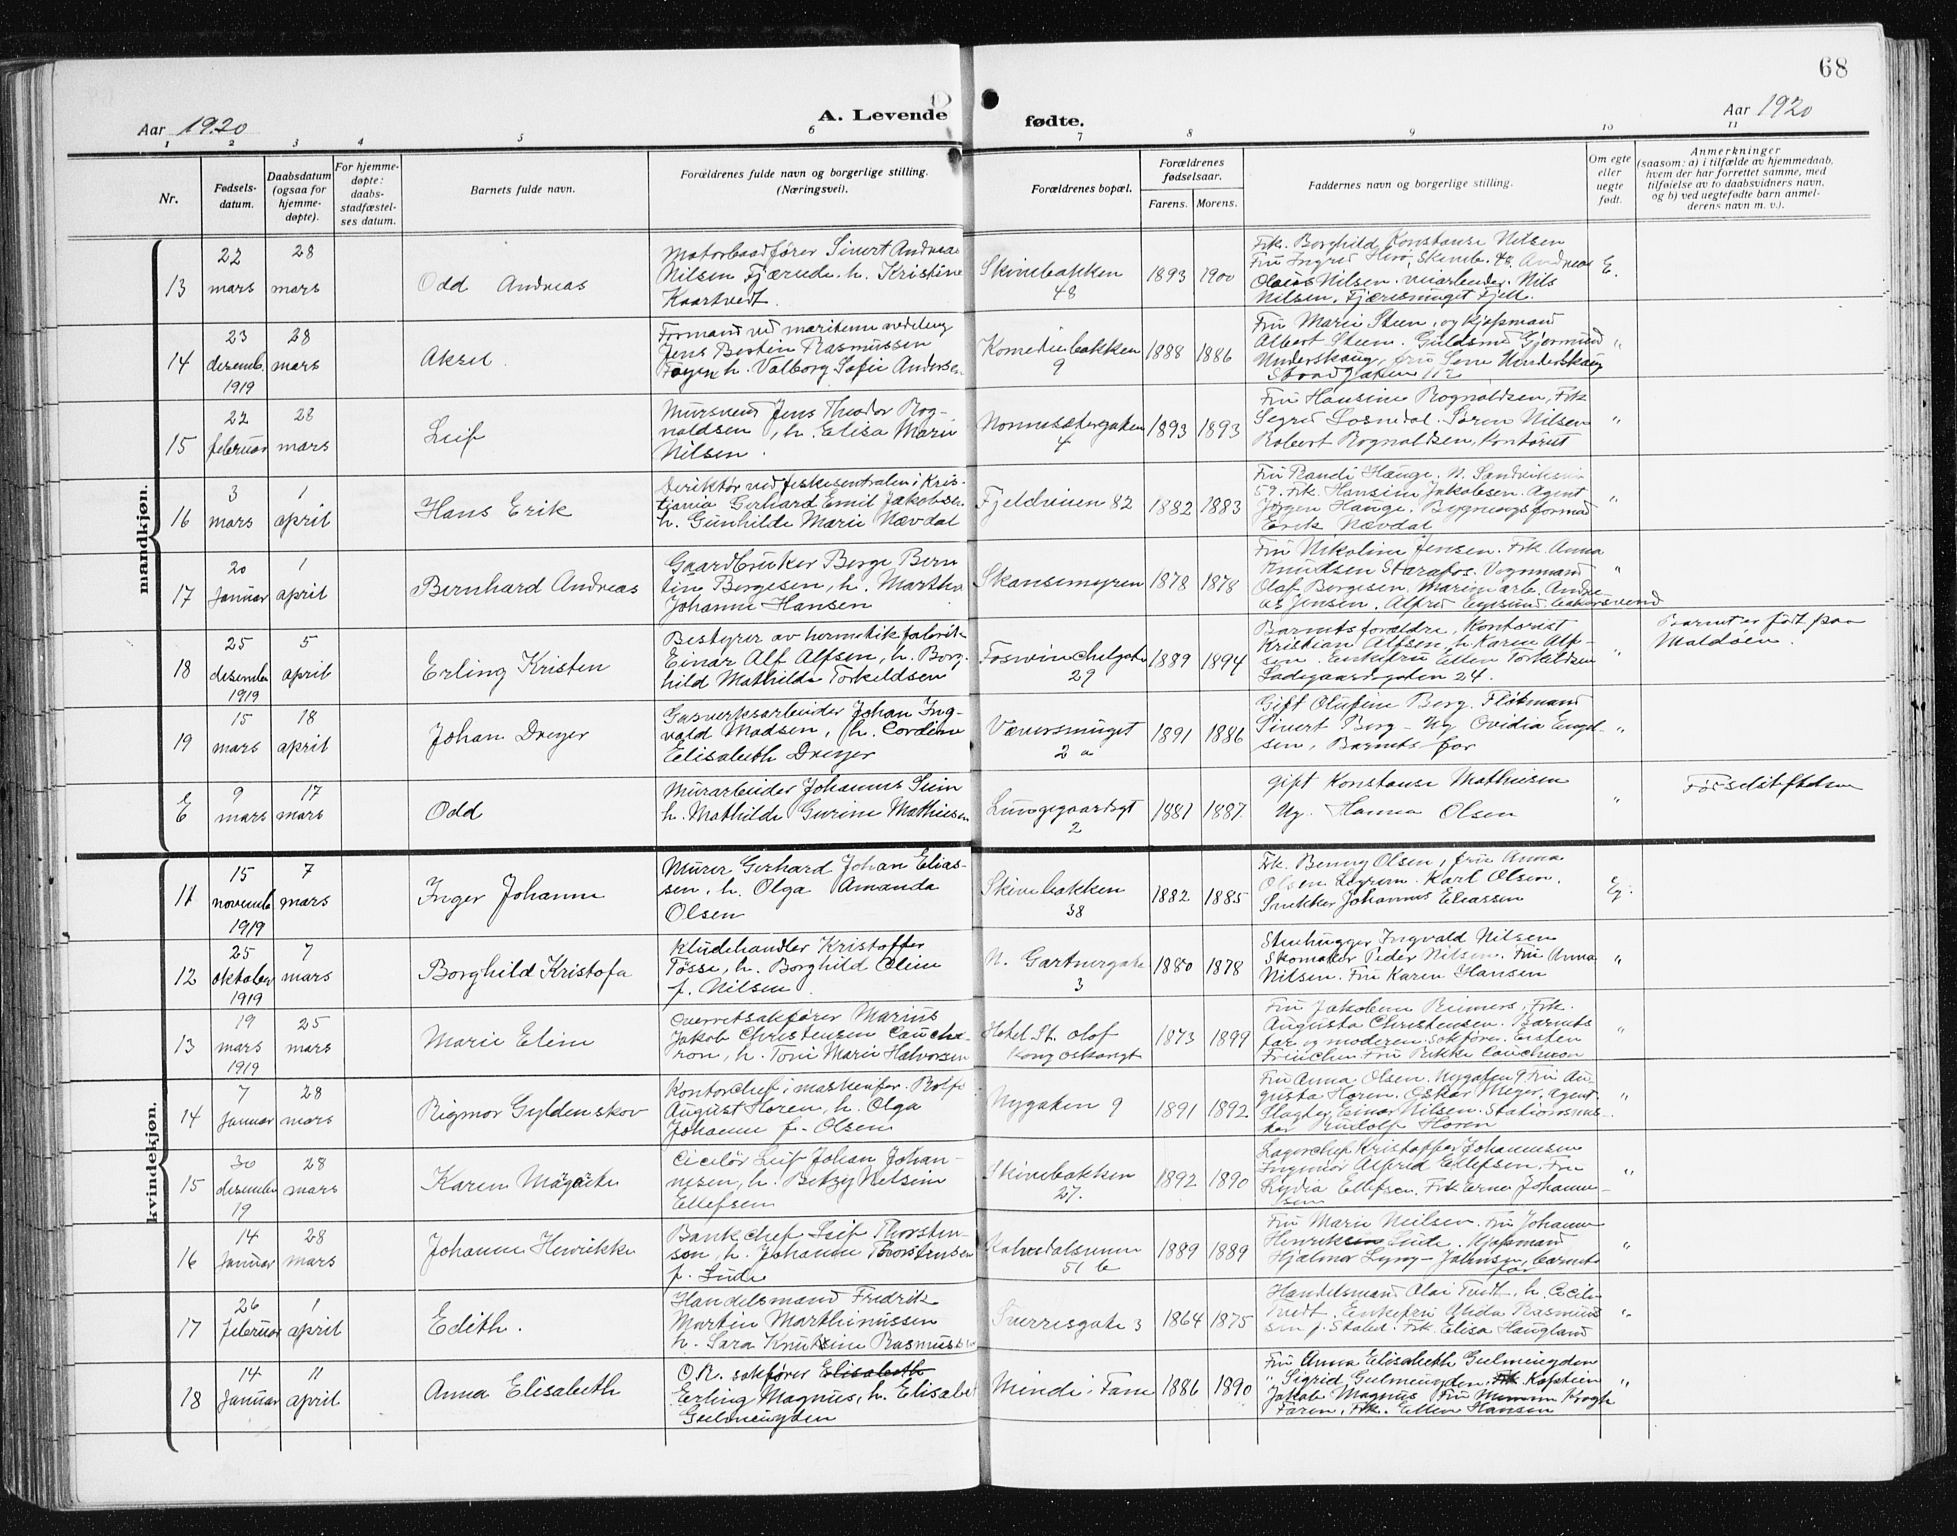 68
Aar 1920
A. Levende fødte.
Aar 1920
1 2 3 4 5 6 7 8 9 10 11
Nr.
Fødsels-
datum.
Daabsdatum
(ogsaa for
hjemme-
døpte).
For hjemme-
døpte:
daabs-
stadfæstel-
ses datum.
Barnets fulde navn.
Forældrenes fulde navn og borgerlige stilling.
(Næringsvei).
Forældrenes bopæl.
Forældrenes
fødselsaar.
Farens. Morens.
Faddernes navn og borgerlige stilling.
Om egte
eller
uegte
født.
Anmerkninger
(saasom: a) i tilfælde av hjemmedaab,
hvem der har forrettet samme, med
tilføielse av to daabsvidners navn,
og b) ved uegtefødte barn anmel-
derens navn m. v.).
mandkjøn.
13
22
mars
28
mars
Odd Andreas
Motorbaadfører Sivert Andreas
Nilsen Fjærude. h. Kristine
Kaartvedt.
Skivebakken
48
1893 1900
Frk. Borghild Konstanse Nilsen
Fru Ingrid
Andreas
Olaus Nilsen. veiarbeider. Nils
Nilsen. Fjæresmuget Fjell.
E.
14
23
desemb.
1919
28
mars
Aksel
Formand ved maritime avdeling
Jens Bertin Rasmussen
h. Valborg Sofie Andersen
Komediebakken
9
1888 1886
Fru Marie Steen, og kjøpmand
Albert Steen. Guldsmd Gjermund
Underskaug, fru Lene Underskaug
Strandgaten 112
"
15
22
februar
28
mars
Leif
Mursvend Jens Theodor Rog-
naldsen, h. Elisa Marie
Nilsen.
Nonnesætergaten
4
1893 1893
Fru Hansine Rognaldsen, Frk
Segred Losnedal. Søren Nilsen
Robert Rognaldsen, Kontorist
"
16
3
mars
1
april
Hans Erik
Direktør ved fiskesentralen i Kris-
tiania Gerhard Emil Jakobsen
h. Gunhilde Marie Nævdal
Fjeldveien 82
1882 1883
Fru Randi Hauge. N. Sandviksvei
59. Frk. Hansine Jakobsen. Agent
Jørgen Hauge. Bygningsformand
Erik Nævdal
"
17
20
Januar
1
april
Bernhard Andreas
Gaardbruker Berge Bern
tin Bergesen, h. Martha
Johanne Hansen
Skansemyren
1878 1878
Fru Nikoline Jensen. Frk. Anna
Knudsen Starefos. Vognmand
Olaf Bergesen. Marinearb. Andre-
as Jensen. Alfred Egesund bakersvend
"
18
25
desember
1919
5
april
Erling Kristen
Bestyrer av hermetikfabrik
Einar Alf Alfsen, h. Borg-
hild Mathilde Torkildsen
Foswinckelgate
29
1889 1894
Barnets forældre, Kontorist
Kristian Alfsen, h. Karen Alf-
sen. Enkefru Ellen Torkildsen
Ladegaardsgaten 24.
"
Barnet er født paa
Maldøen.
19
15
mars
18
april
Johan Dreyer
Gasverksarbeider Johan Ing-
vald Madsen, h. Cordine
Elisabeth Dreyer
Væversmuget
2 a
1891 1886
Gift Olufine Berg. Fløtmand
Sivert Berg - Ug Ovidia Engel-
sen, Barnets far
"
E
9
mars
17
mars
Odd
Murarbeider Johannes Seim
h. Mathilde Gurine Mathiesen
Lungegaardsgt
2
1881 1887.
gift Konstanse Mathiesen
Ug. Hanna Olsen
"
Fødselsstiftelsen
kvindekjøn.
11
15
novemb.
1919
7
mars
Inger Johanne
Murer Gerhard Johan Elias-
sen, h. Olga Amanda
Olsen
Skivebakken
38
1882 1885
Frk. Benny Olsen, fru Anna
Olsen Løgrim. Karl Olsen.
Snekker Johannes Eliassen
Eg.
12
25
oktober
1919
7
mars
Borghild Kristofa
Kludehandler Kristoffer
Tøsse, h. Borghild Eline
f. Nilsen.
N. Gartnergate
3
1880 1878
Stenhugger Ingvald Nilsen
Skomaker Peder Nilsen. Fru Anna
Nilsen. Fru Karen Hansen
"
13
19
mars
1919
25
mars
Marie Eline
Overretsakfører Marius
Jakob Christensen Couche-
ron, h. Toni Marie Halvorsen
Hotel St. Olof
Kong oskarsgt
1873 1899
Fru Jakobine Reimers. Frk.
Augusta Christensen. Barnets
far og moderen. Sakfører Eisten
Friechen. Fru Bikke Coucheron
"
14
7
Januar
28
mars
Rigmor Gyldenskov
Kontorchef i maskinfor. Rolf
August Horen, h. Olga
Johanne f. Olsen
Nygaten 9
1891 1892
Fru Anna Olsen. Nygaten 9. Fru Au-
gusta Horen. Oskar Meyer, agent
Slagter Einar Nilsen. Stationsmes-
ter Rudolf Horen
"
15
30
desember
19
28
mars
Karen Margrete
Cicelør Leif Johan Johan-
nesen, h. Betzy Nelsine
Ellefsen
Skivebakken
27.
1892 1890
Lagerchef Kristoffer Johannesen
Ingeniør Alfred Ellefsen. Fru
Lydia Ellefsen. Frk Erna Johanne-
sen
"
16
14
Januar
28
mars
Johanne Henrikke
Bankchef Leif Thorsten-
son, h. Johanne Thorstensen
f. Lude
Kalvedalsveien
51 b
1889 1889
Fru Marie Neilsen. Fru Johanne
Henriksen Lude. Kjøpmand
Hjalmar Lyng-Johnsen, barnets
far
"
17
26
februar
1
april
Edith.
Handelsmand Fredrik
Morten Marthinussen
h. Sara Knutsine Rasmussen
Sverresgate 3
1864 1875
Handelsmand Olai Tvedt, h. Cecil-
Tvedt. Enkefru Alida Rasmus
sen f. Stabel. Frk. Elisa Haugland
"
18
14
Januar
11
april
Anna Elisabeth
O.R. sakfører Elisabeth
Erling Magnus, h. Elisabet
Geelmeuyden
Minde i Fane
1886 1890
Fru Anna Elisabeth Geelmeuyden
" Sigrid Geelmeuyden, Frk Kaptein
Jakob Magnus Fru Mimmi Krogh
Faren, Frk. Ellen Hansen
"